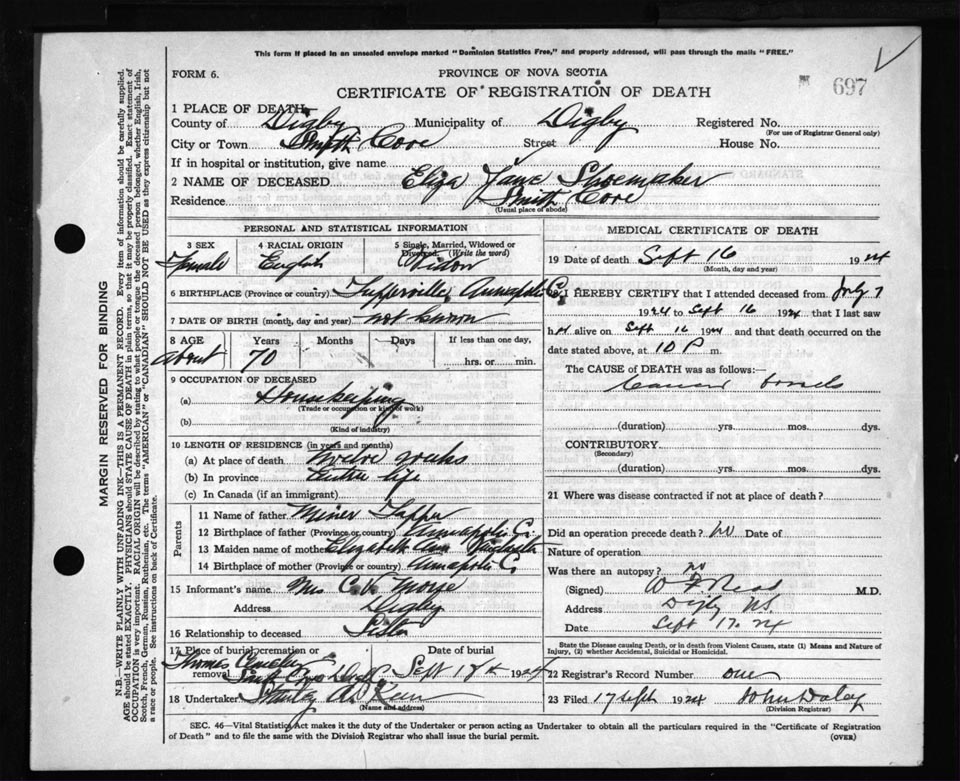 This form if placed in an unsealed envelope marked "Dominion Statistics Free," and properly addressed, will pass through the mails "FREE."
FORM 6.
PROVINCE OF NOVA SCOTIA
697
CERTIFICATE OF REGISTRATION OF DEATH
1 PLACE OF DEATH
County of Digby Municipality of Digby Registered No.
(For use of Registrar General only)
City or Town Smith Cove Street House No.
If in hospital or institution, give name
2 NAME OF DECEASED Eliza Jane Shoemaker
Residence Smith Cove
(Usual place of abode)
PERSONAL AND STATISTICAL INFORMATION
3 SEX 4 RACIAL ORIGIN 5 Single, Married, Widowed or Divorced. (Write the word)
Female English Widow
6 BIRTHPLACE (Province or country) Tupperville Annapolis Co.
7 DATE OF BIRTH (month, day and year) not known
8 AGE Years Months Days If less than one day,
about 70 hrs. or min.
9 OCCUPATION OF DECEASED
(a) Housekeeping
(Trade or occupation or kind of work)
(b)
(Kind of industry)
10 LENGTH OF RESIDENCE (in years and months)
(a) At place of death twelve weeks
(b) In province Entire life
(c) In Canada (if an immigrant)
Parents
11 Name of father Miner Tupper
12 Birthplace of father (Province or country) Annapolis Co.
13 Maiden name of mother Elizabeth Ann
14 Birthplace of mother (Province or country) Annapolis Co.
15 Informant's name Mrs C. V. Morse
Address Digby
16 Relationship to deceased Sister
17 Place of burial, cremation or removal Date of burial
Sept 18th 1924
18 Undertaker Stanley
(Name and address)
MEDICAL CERTIFICATE OF DEATH
19 Date of death Sept 16 1924
(Month, day and year)
20 I HEREBY CERTIFY that I attended deceased from July 7
1924 to Sept 16 1924 that I last saw
her alive on Sept 16 1924 and that death occurred on the
date stated above, at 10 P m.
The CAUSE of DEATH was as follows:—
Cancer bowels
(duration) yrs. mos. dys.
CONTRIBUTORY
(Secondary)
(duration) yrs. mos. dys.
21 Where was disease contracted if not at place of death?
Did an operation precede death? no Date of
Nature of operation
Was there an autopsy? no
(Signed) W F Read M.D.
Address Digby N.S.
Date Sept 17. 24
State the Disease causing Death, or in death from Violent Causes, state (1) Means and Nature of
Injury, (2) whether Accidental, Suicidal or Homicidal.
22 Registrar's Record Number one
23 Filed 17 Sept 1924 John Daley
(Division Registrar)
SEC. 46—Vital Statistics Act makes it the duty of the Undertaker or person acting as Undertaker to obtain all the particulars required in the "Certificate of Registration
of Death" and to file the same with the Division Registrar who shall issue the burial permit. (OVER)
MARGIN RESERVED FOR BINDING
N.B.—WRITE PLAINLY WITH UNFADING INK—THIS IS A PERMANENT RECORD. Every item of information should be carefully supplied.
AGE should be stated EXACTLY. PHYSICIANS should STATE CAUSE OF DEATH in plain terms, so that it may be properly classified. Exact statement of
OCCUPATION is very important. RACIAL ORIGIN will be described by stating to what people or tongue the deceased person belonged, whether English, Irish,
Scotch, French, German, Russian, Ruthenian, etc. The terms "AMERICAN" or "CANADIAN" SHOULD NOT BE USED as they express citizenship but not
a race or people. See instructions on back of Certificate.